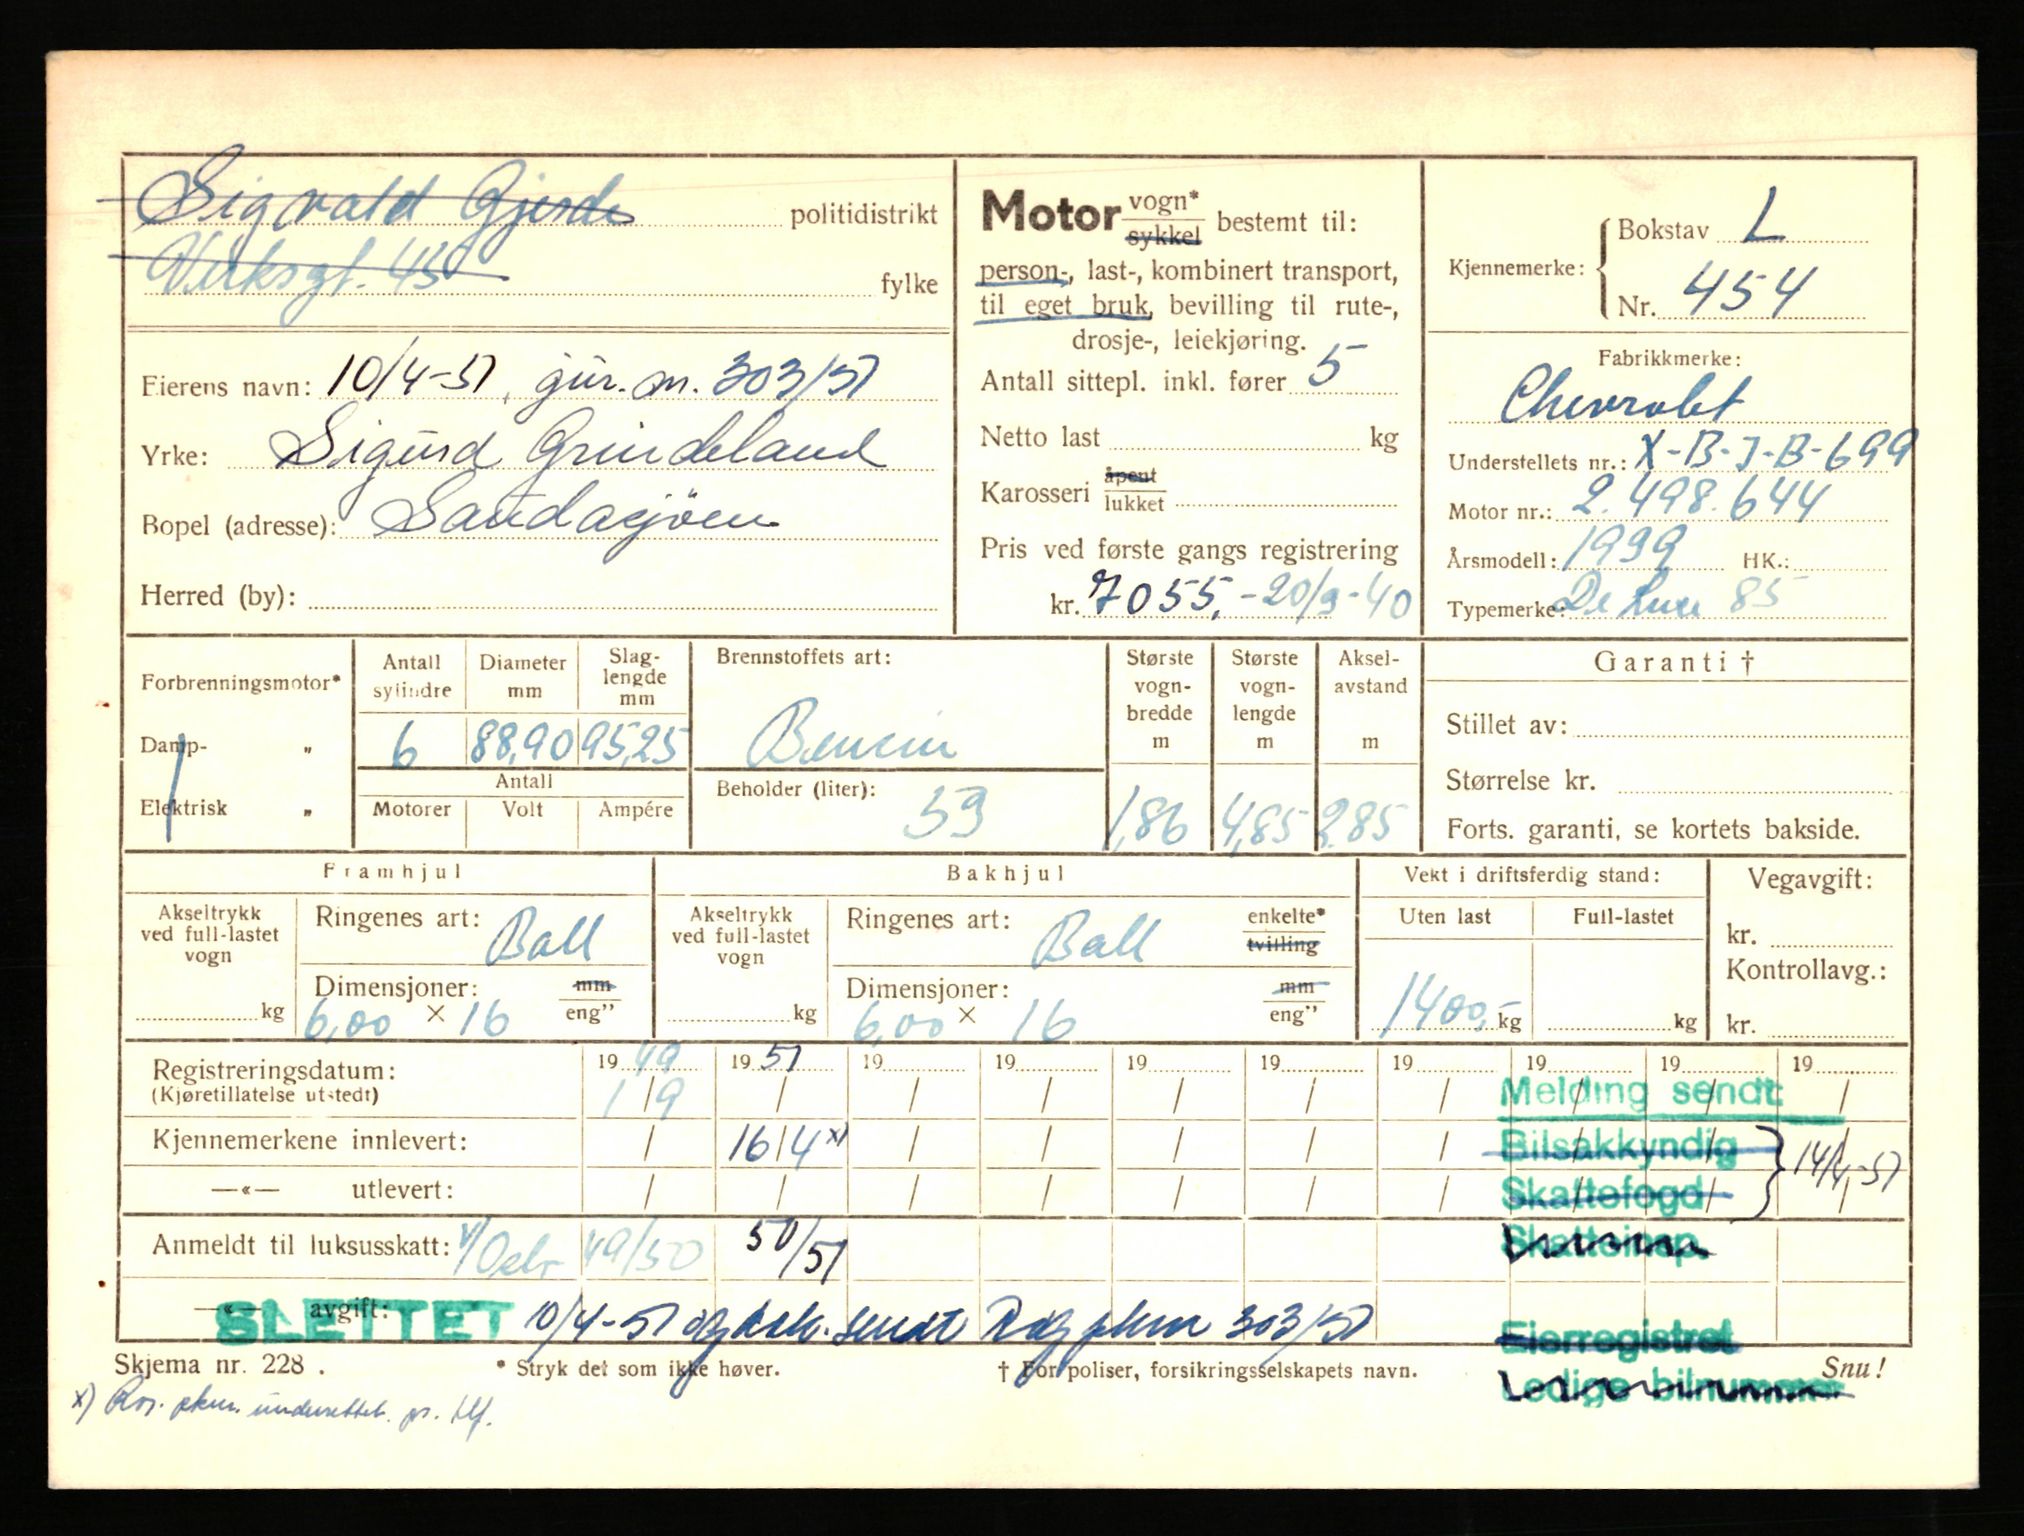 Sigvald Gjerde politidistrikt
Verksgt. 43 fylke
Eierens navn: 10/4-51, jur. m. 303/51
Yrke: Sigurd Grindeland
Bopel (adresse): Saudasjöen
Herred (by):
Motor vogn* sykkel bestemt til:
person-, last-, kombinert transport,
til eget bruk, bevilling til rute-,
drosje-, leiekjøring.
Antall sittepl. inkl. fører 5
Netto last kg
Karosseri åpent lukket
Pris ved første gangs registrering
kr. 7055,- 20/9-40
Kjennemerke: Bokstav L
Nr. 454
Fabrikkmerke:
Chevrolet
Understellets nr.: X-B-J-B-699
Motor nr.: 2.498.644
Årsmodell: 1939 HK.:
Typemerke: De Luxe 85
Forbrenningsmotor*
Damp- "
Elektrisk "
Antall sylindre Diameter mm Slag-lengde mm
6 88,90 95,25
Antall
Motorer Volt Ampére
Brennstoffets art:
Bensin
Beholder (liter):
53
Største vogn-bredde m Største vogn-lengde m Aksel-avstand m
1,86 4,85 2.85
Garanti †
Stillet av:
Størrelse kr.
Forts. garanti, se kortets bakside.
Framhjul
Akseltrykk ved full-lastet vogn
kg
Ringenes art: Ball
Dimensjoner: mm
6,00 × 16 eng"
Bakhjul
Akseltrykk ved full-lastet vogn
kg
Ringenes art: Ball enkelte* tvilling
Dimensjoner: mm
6,00 × 16 eng"
Vekt i driftsferdig stand:
Uten last Full-lastet
1400,- kg kg
Vegavgift:
kr.
Kontrollavg.:
kr.
Registreringsdatum: 1949 1951 19 19 19 19 19 19 19 19
(Kjøretillatelse utstedt) 1/9 / / / / / / / / /
Melding sendt
Kjennemerkene innlevert: / 16/4 x) / / / / / /
Bilsakkyndig } 14/4-51
—«— utlevert: / / / / / / /
Skattefogd
Anmeldt til luksusskatt: 49/50 50/51
Skatteinsp.
—«— avgift:
SLETTET 10/4-51 og kok. sendt Rog pkm 303/51
Eierregistret
Skjema nr. 228. * Stryk det som ikke høver. † For poliser, forsikringsselskapets navn. Snu!
Ledige bilnummer
x) Rog. pkm. underettet pr. tlf.